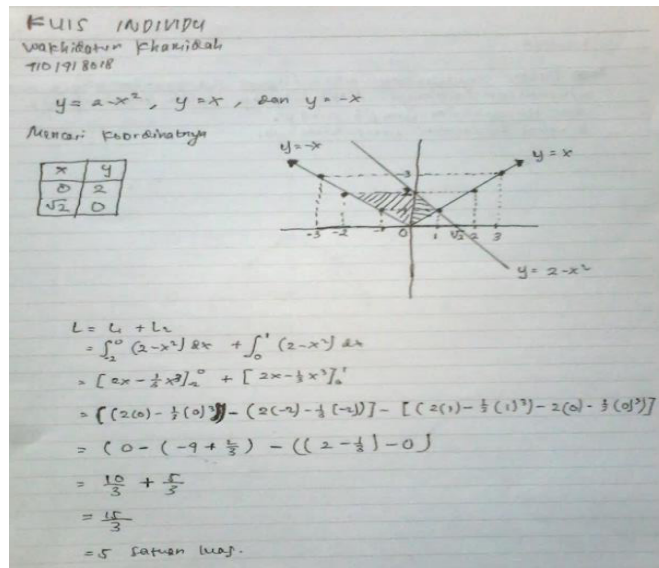 KUIS INDIVIDU
Wakhidatun Khamidah
4101918018
y = 2-x², y = x, dan y = -x
Mencari Koordinatnya
x y
0 2
√2 0
y=-x
y = x
3
2
-3 -2 -1 0 1 √2 2 3
y = 2-x²
L = L₁ + L₂
= ∫₋₂⁰ (2-x²) dx + ∫₀¹ (2-x²) dx
= [2x - ⅓x³]₋₂⁰ + [2x - ⅓x³]₀¹
= [(2(0) - ⅓(0)³)] - (2(-2) - ⅓(-2))] - [(2(1) - ⅓(1)³) - 2(0) - ⅓(0)³)]
= (0 - (-4 + 2/3) - ((2 - ⅓) - 0)
= 10/3 + 5/3
= 15/3
= 5 satuan luas.